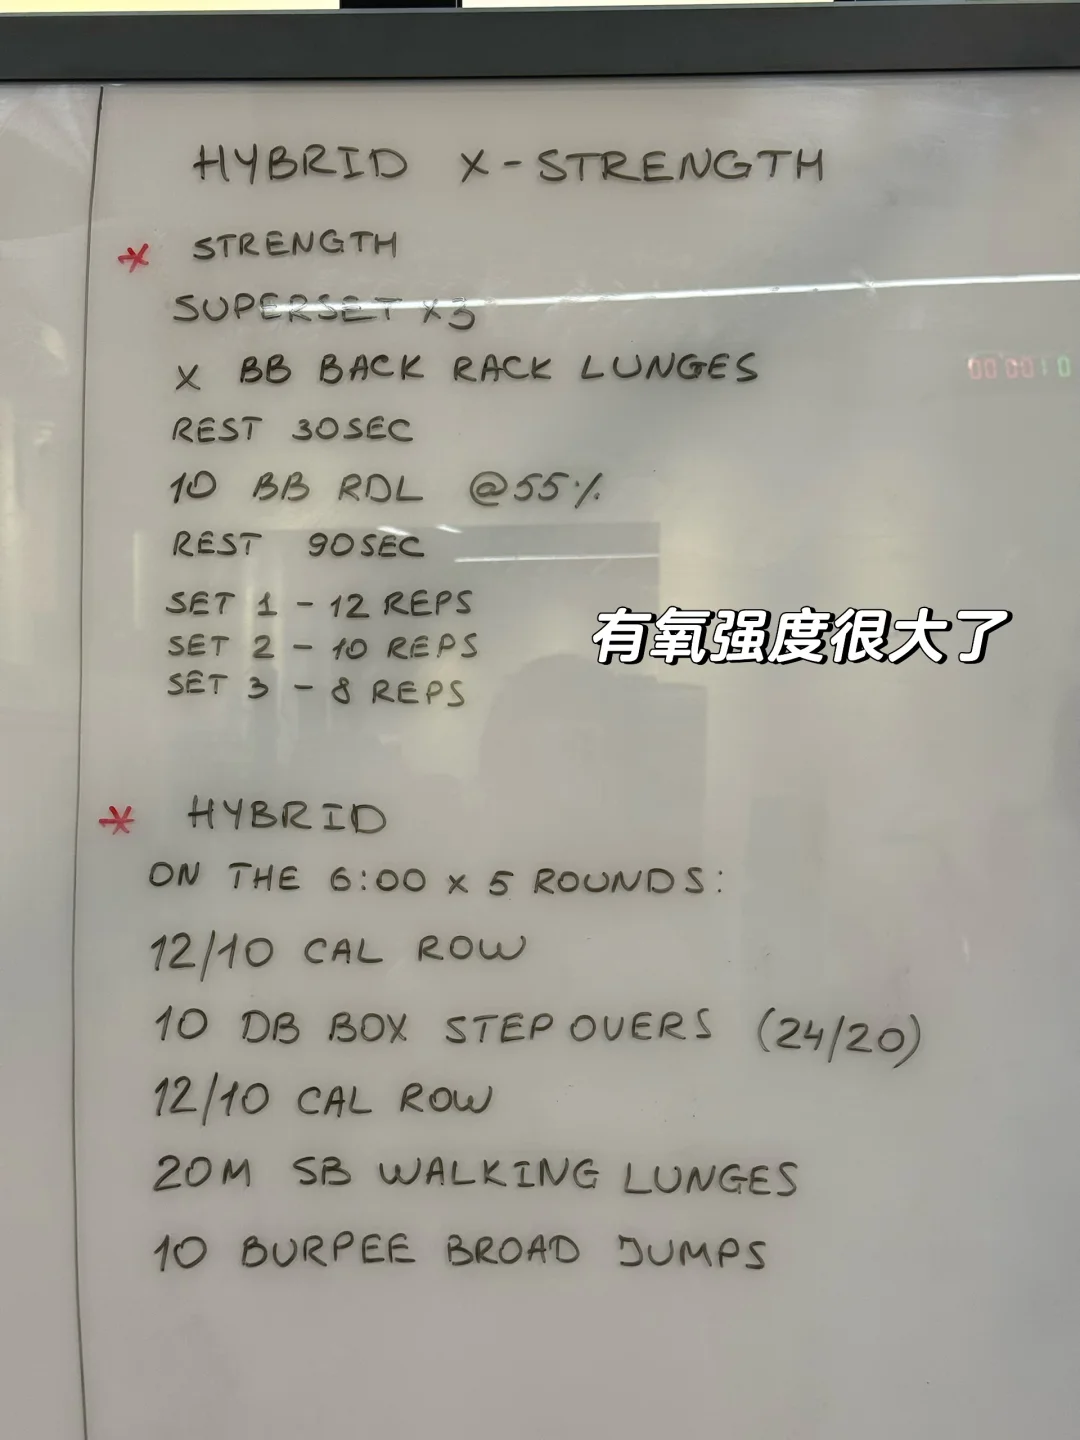 HYBRID X-STRENGTH
* STRENGTH
SUPERSET X3
X BB BACK RACK LUNGES
REST 30SEC
10 BB RDL @55%
REST 90SEC
SET 1 - 12 REPS
SET 2 - 10 REPS
SET 3 - 8 REPS
有氧强度很大了
* HYBRID
ON THE 6:00 x 5 ROUNDS:
12/10 CAL ROW
10 DB BOX STEP OVERS (24/20)
12/10 CAL ROW
20M SB WALKING LUNGES
10 BURPEE BROAD JUMPS